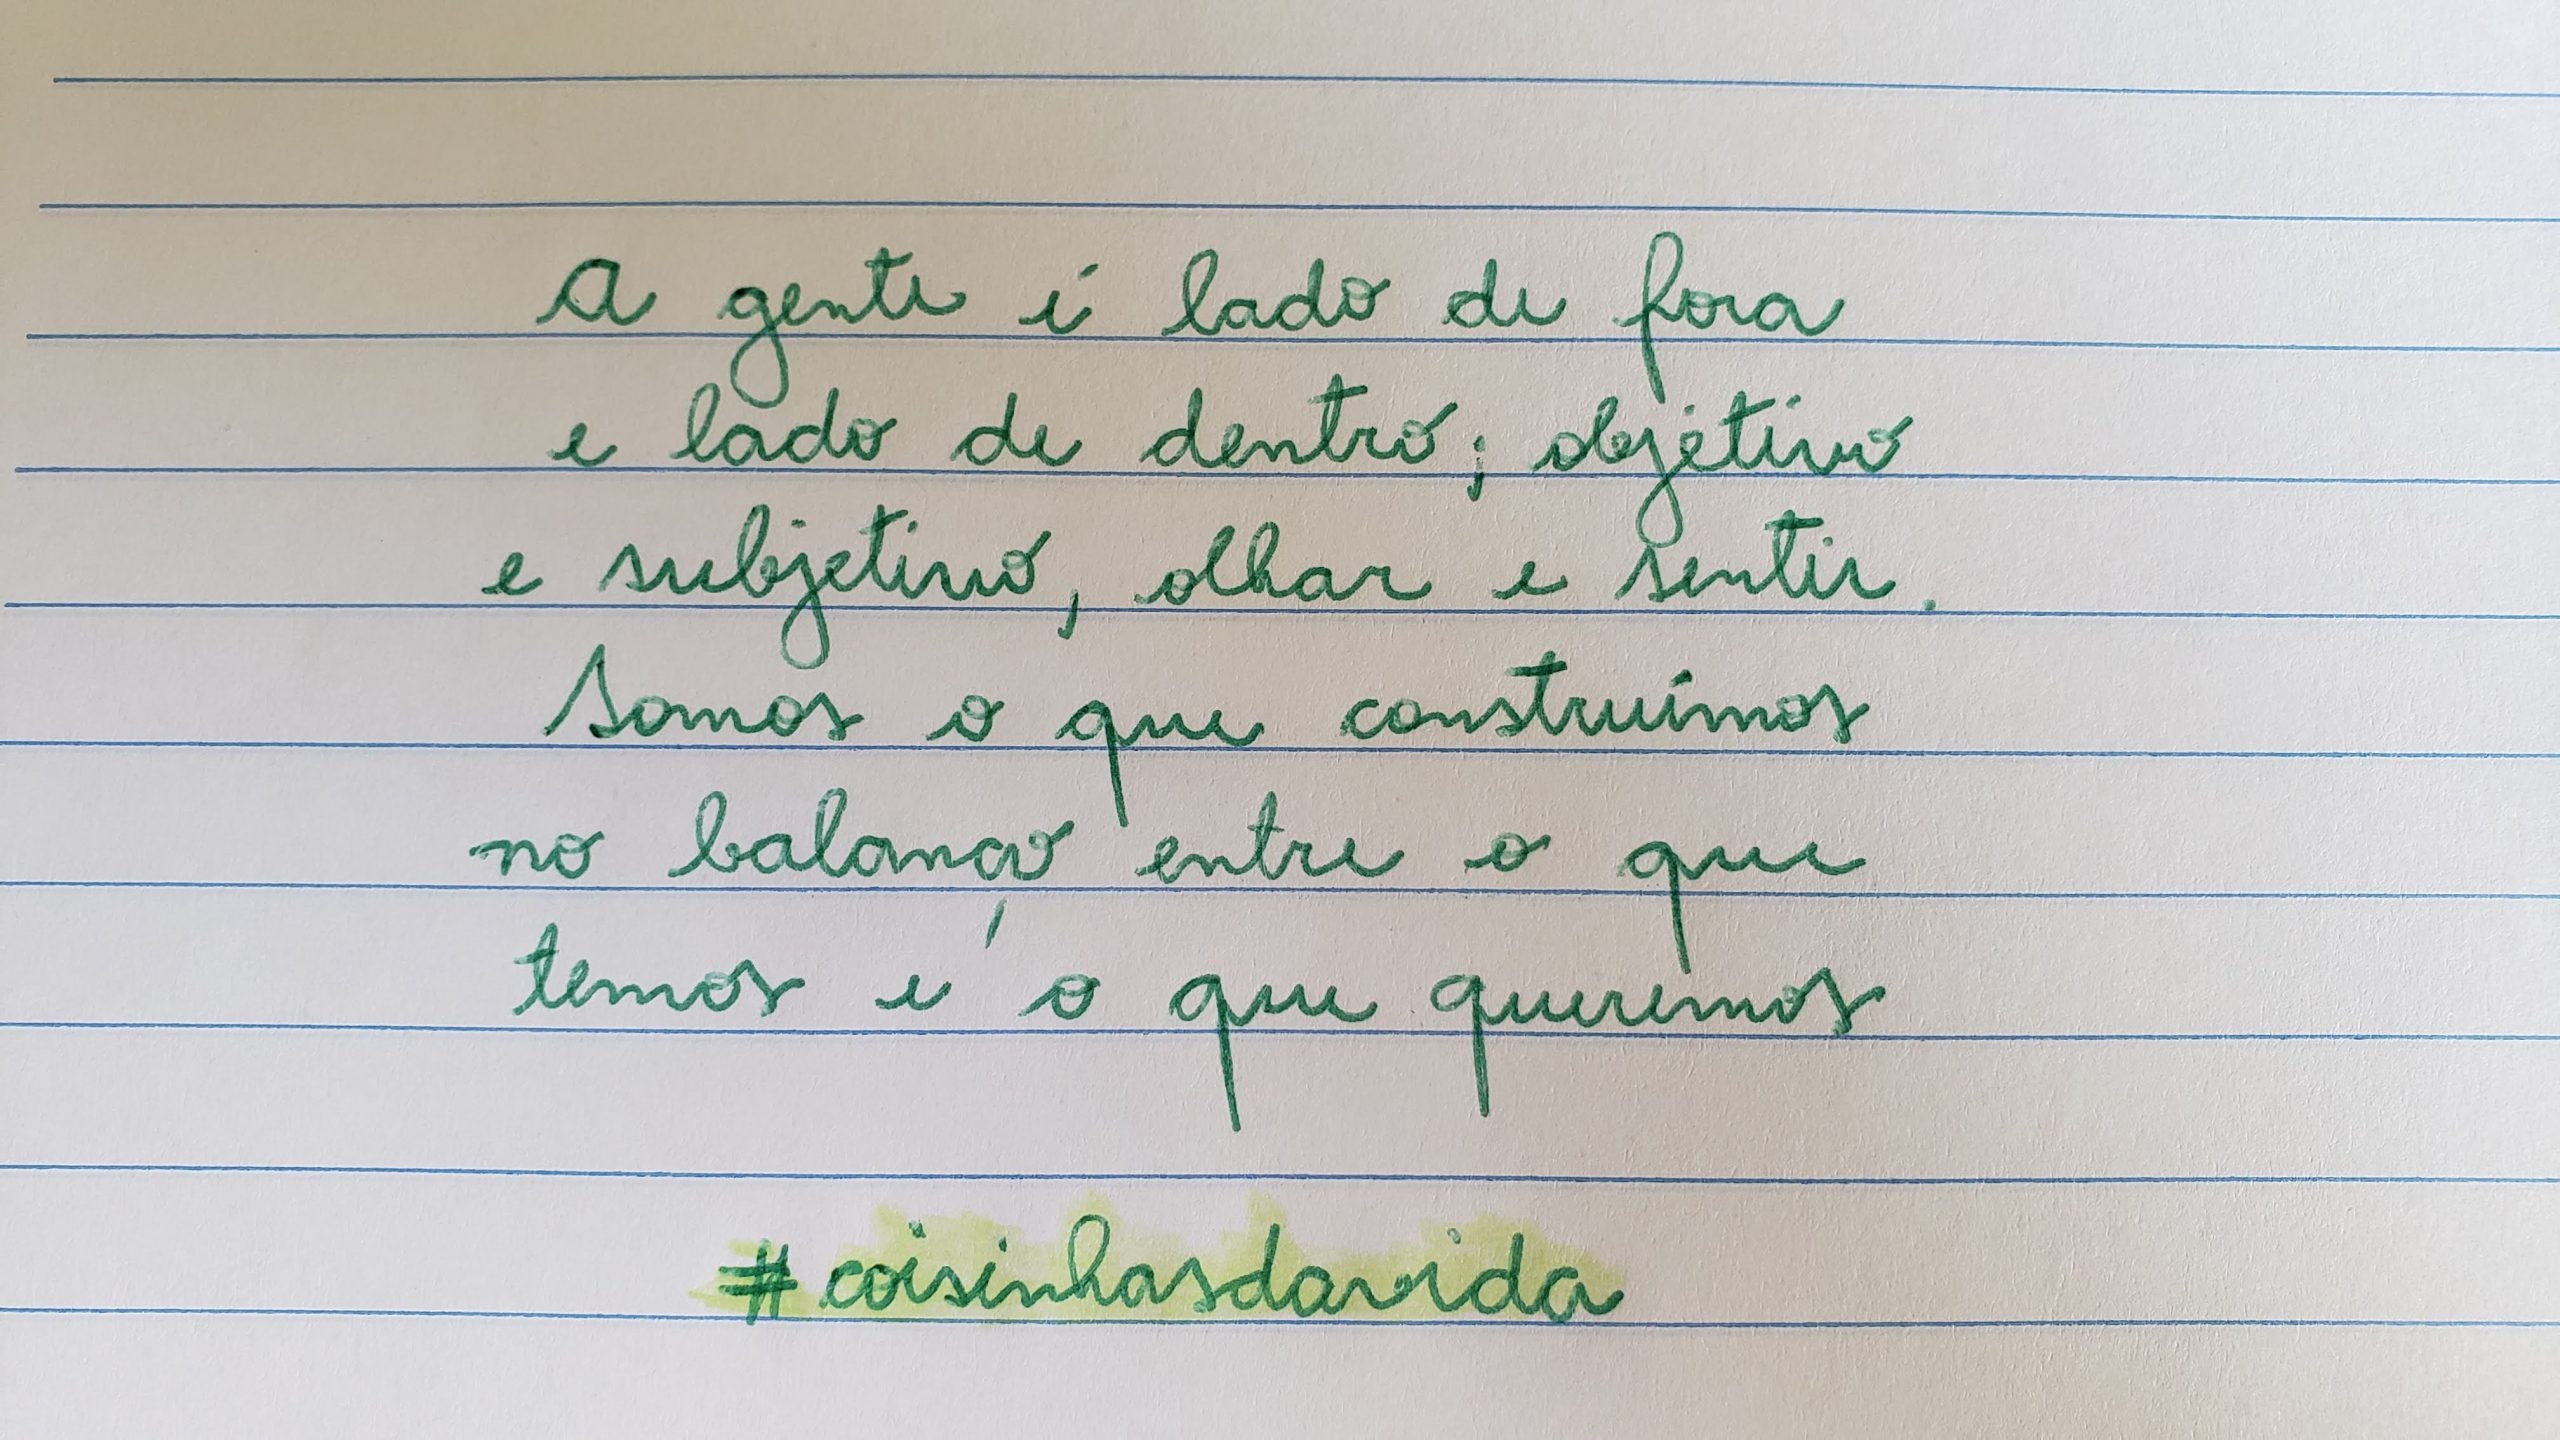 A gente é lado de fora
e lado de dentro; objetivo
e subjetivo, olhar e sentir.
Somos o que construímos
no balanço entre o que
temos e o que queremos
#coisinhasdavida